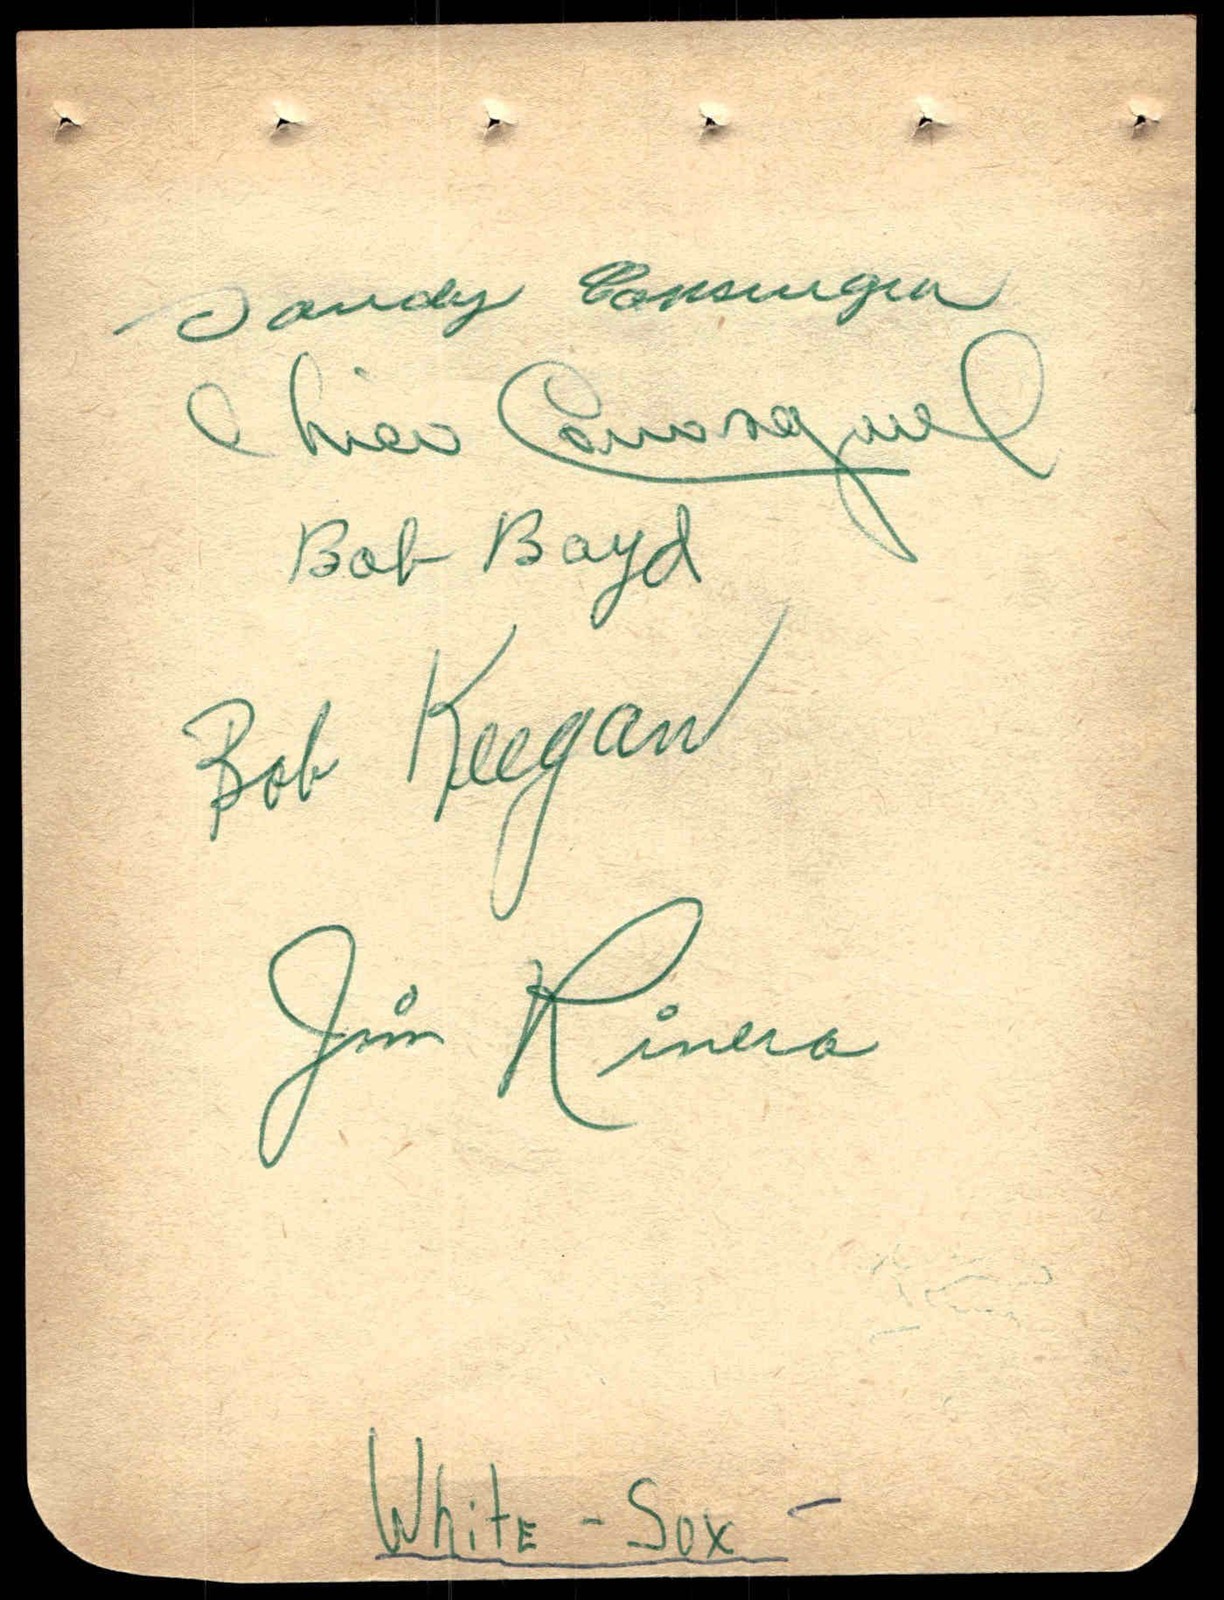 Sandy Consuegra
Chico Carrasquel
Bob Boyd
Bob Keegan
Jim Rivera
White - Sox -